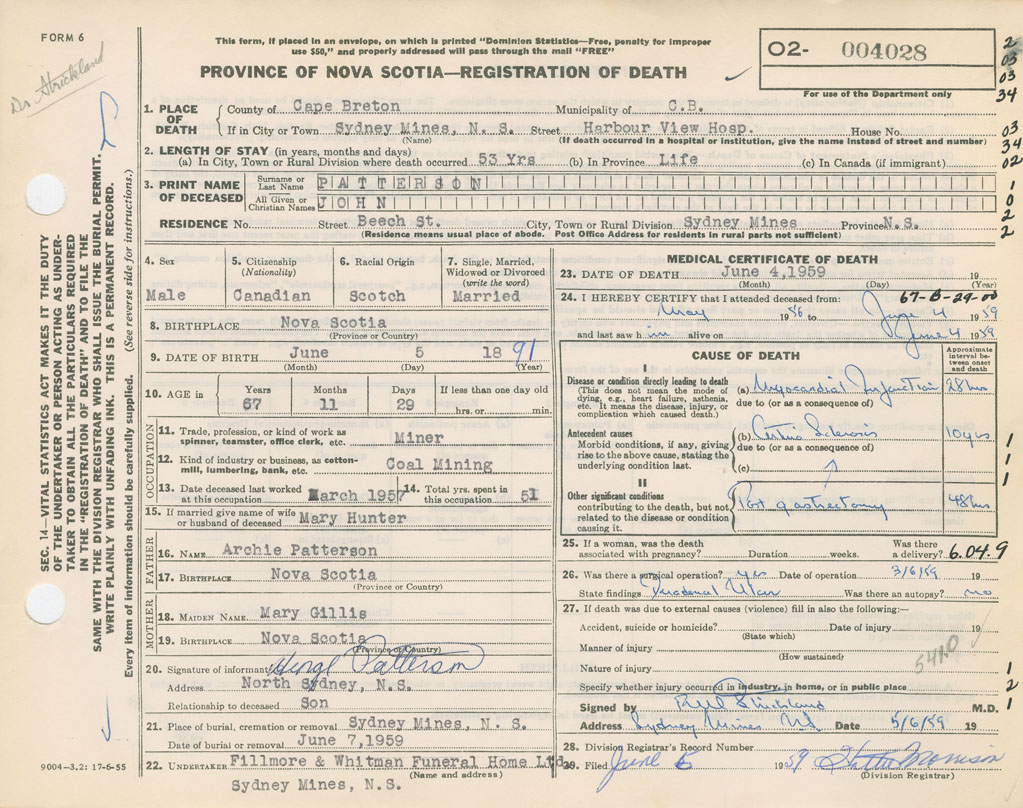 FORM 6
Dr. Strickland
This form, if placed in an envelope, on which is printed "Dominion Statistics—Free, penalty for improper
use $50," and properly addressed will pass through the mail "FREE"
PROVINCE OF NOVA SCOTIA—REGISTRATION OF DEATH
02- 004028
For use of the Department only
2
03
03
34
03
34
02
1
0
2
2
SEC. 14—VITAL STATISTICS ACT MAKES IT THE DUTY
OF THE UNDERTAKER OR PERSON ACTING AS UNDER-
TAKER TO OBTAIN ALL THE PARTICULARS REQUIRED
IN THE "REGISTRATION OF DEATH" AND TO FILE THE
SAME WITH THE DIVISION REGISTRAR WHO SHALL ISSUE THE BURIAL PERMIT.
WRITE PLAINLY WITH UNFADING INK. THIS IS A PERMANENT RECORD.
Every item of information should be carefully supplied. (See reverse side for instructions.)
1. PLACE OF DEATH County of Cape Breton Municipality of C.B.
If in City or Town Sydney Mines, N. S. Street Harbour View Hosp. House No.
(Name) (If death occurred in a hospital or institution, give the name instead of street and number)
2. LENGTH OF STAY (in years, months and days)
(a) In City, Town or Rural Division where death occurred 53 Yrs (b) In Province Life (c) In Canada (if immigrant)
3. PRINT NAME OF DECEASED Surname or Last Name PATTERSON
All Given or Christian Names JOHN
RESIDENCE No. Street Beech St. City, Town or Rural Division Sydney Mines Province N.S.
(Residence means usual place of abode. Post Office Address for residents in rural parts not sufficient)
4. Sex 5. Citizenship (Nationality) 6. Racial Origin 7. Single, Married, Widowed or Divorced (write the word)
Male Canadian Scotch Married
8. BIRTHPLACE Nova Scotia
(Province or Country)
9. DATE OF BIRTH June 5 1891
(Month) (Day) (Year)
10. AGE in Years Months Days If less than one day old
67 11 29 hrs. or min.
OCCUPATION
11. Trade, profession, or kind of work as
spinner, teamster, office clerk, etc. Miner
12. Kind of industry or business, as cotton-
mill, lumbering, bank, etc. Coal Mining
13. Date deceased last worked at this occupation March 1957 14. Total yrs. spent in this occupation 51
15. If married give name of wife
or husband of deceased Mary Hunter
FATHER
16. NAME Archie Patterson
17. BIRTHPLACE Nova Scotia
(Province or Country)
MOTHER
18. MAIDEN NAME Mary Gillis
19. BIRTHPLACE Nova Scotia
(Province or Country)
20. Signature of informant Patterson
Address North Sydney, N.S.
Relationship to deceased Son
21. Place of burial, cremation or removal Sydney Mines, N. S.
Date of burial or removal June 7,1959
22. UNDERTAKER Fillmore & Whitman Funeral Home Ltd.
(Name and address)
Sydney Mines, N.S.
9004—3.2: 17-6-55
MEDICAL CERTIFICATE OF DEATH
23. DATE OF DEATH June 4,1959 19
(Month) (Day) (Year)
24. I HEREBY CERTIFY that I attended deceased from: 67-B-29-00
May 1956 to June 4 1959
and last saw him alive on June 4 1959
CAUSE OF DEATH
Approximate interval between onset and death
I
Disease or condition directly leading to death
(This does not mean the mode of
dying, e.g., heart failure, asthenia,
etc. It means the disease, injury, or
complication which caused death.)
(a) Myocardial Infarction 28 hrs
due to (or as a consequence of)
Antecedent causes
Morbid conditions, if any, giving
rise to the above cause, stating the
underlying condition last.
(b) Arterio Sclerosis 10 yrs
due to (or as a consequence of)
(c)
II
Other significant conditions
contributing to the death, but not
related to the disease or condition
causing it.
Post gastrectomy 48 hrs
1
1
1
25. If a woman, was the death
associated with pregnancy? Duration weeks. Was there a delivery? 6.04.9
26. Was there a surgical operation? yes Date of operation 3/6/59 19
State findings Duodenal Ulcer Was there an autopsy? no
27. If death was due to external causes (violence) fill in also the following:—
Accident, suicide or homicide? Date of injury 19
(State which)
Manner of injury
(How sustained)
541.0
Nature of injury
Specify whether injury occurred in industry, in home, or in public place
1
2
1
Signed by Strickland M.D.
Address Sydney Mines NS Date 5/6/59 19
28. Division Registrar's Record Number
29. Filed June 6 1959 Morrison
(Division Registrar)